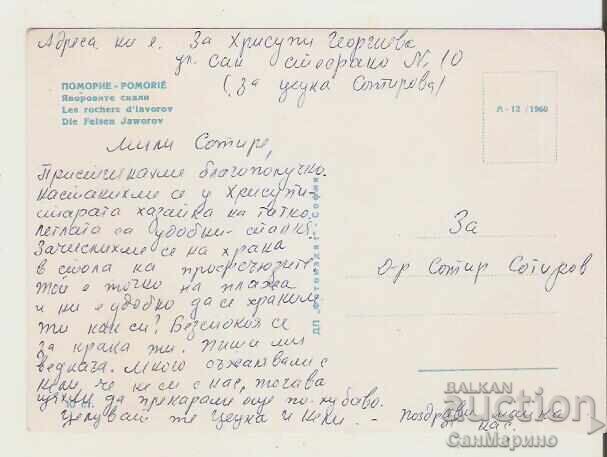 Адреса ни е. За Хрисупи Георгиева
ул. Сан Стефано № 10
(за Цецка Сотирова)
ПОМОРИЕ - POMORIÉ
Яворовите скали
Les rochers d'Iavorov
Die Felsen Jaworov
Л-12 / 1960
Мили Сотире,
Пристигнахме благополучно.
Настанихме се у Хрисупи-
старата хазайка на татко.
Леглата са удобни-
Зачислихме се на храна
в стола на профсъюзите.
Той е точно на плажа
и ни е удобно да се храним.
Ти как си? Безспокоя се
за крака ти. Пиши ми
веднага. Много съжаляваме с
Нели, че не си с нас, тогава
щяхме да прекараме още по-хубаво.
Целувам те Цецка и Нели. -
Поздрави майка
от нас.
За
Д-р Сотир Сотиров
ДП „Фотоиздат" - София
BALKAN
auction
СанМарино